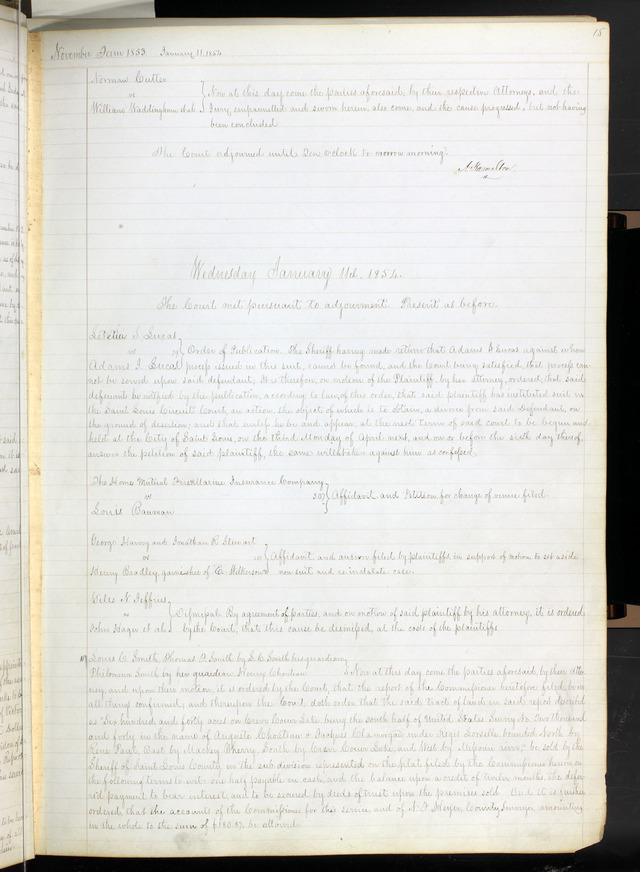 15
November Term 1853. January 11. 1854
Norman Cutter
vs
William Waddingham et al.
Now at this day come the parties aforesaid, by their respective Attorneys, and the
Jury, empannelled and sworn herein, also come, and the cause progressed, but not having
been concluded
The Court adjourned until Ten o'clock to morrow morning.
A Hamilton
Wednesday January 11th. 1854.
The Court met pursuant to adjournment. Present as before.
Letetia S Lucas
vs
Adams Lucas
Order of Publication. The Sheriff having made return that Adams Lucas against whom
process issued in this suit, cannot be found, and the Court being satisfied, that process can
not be served upon said defendant, It is therefore, on motion of the Plaintiff, by her attorney, ordered, that said
defendant be notified by the publication, according to law, of this order, that said plaintiff has instituted suit in
the Saint Louis Circuit Court, an action, the object of which is to obtain a divorce from said defendant, on
the ground of desertion; and that unless he be and appear, at the next term of said court to be begun and
held at the City of Saint Louis, on the third Monday of April next, and on or before the sixth day thereof,
answer the petition of said plaintiff, the same will be taken against him as confessed.
The Home Mutual Fire & Marine Insurance Company
vs
Louis Bauman
Affidavit and Petition for change of venue filed
George Harvey and Jonathan R Stewart
vs
Henry Bradley, garnishee of C. Wilkerson
Affidavit and answer filed by plaintiffs in support of motion to set aside
non suit and re instate case.
Giles N Jeffries
vs
John Hager et al.
Dismissal By agreement of parties, and on motion of said plaintiff by his attorney, it is ordered
by the Court, that this cause be dismissed, at the costs of the plaintiffs
Louis C. Smith Thomas Smith by S. C. Smith his guardian
Philomena Smith by her guardian Henry Chouteau
Now at this day come the parties aforesaid, by their attor
ney, and upon their motion, it is ordered by the Court, that the report of the Commissioners heretofore filed, be in
all things confirmed; and thereupon the Court doth order that the said tract of land in said report described
as Six hundred and forty acres on Creve Coeur Lake being the south half of United States Survey No Two thousand
and forty, in the name of Auguste Chouteau & Jacques Clamorgan under Regis Loiselle bounded North by
Rene Paul, East by Mackey Wherry, South by Creve Coeur Lake, and West by Missouri river, be sold by the
Sheriff of Saint Louis County, in the sub division represented on the plat filed by the Commissioners herein on
the following terms to wit: one half payable in cash, and the balance upon a credit of twelve months, the defer
red payment to bear interest, and to be secured by deeds of trust upon the premises sold. And it is further
ordered, that the accounts of the Commissioners for their service, and of County Surveyor amounting
in the whole to the sum of be allowed